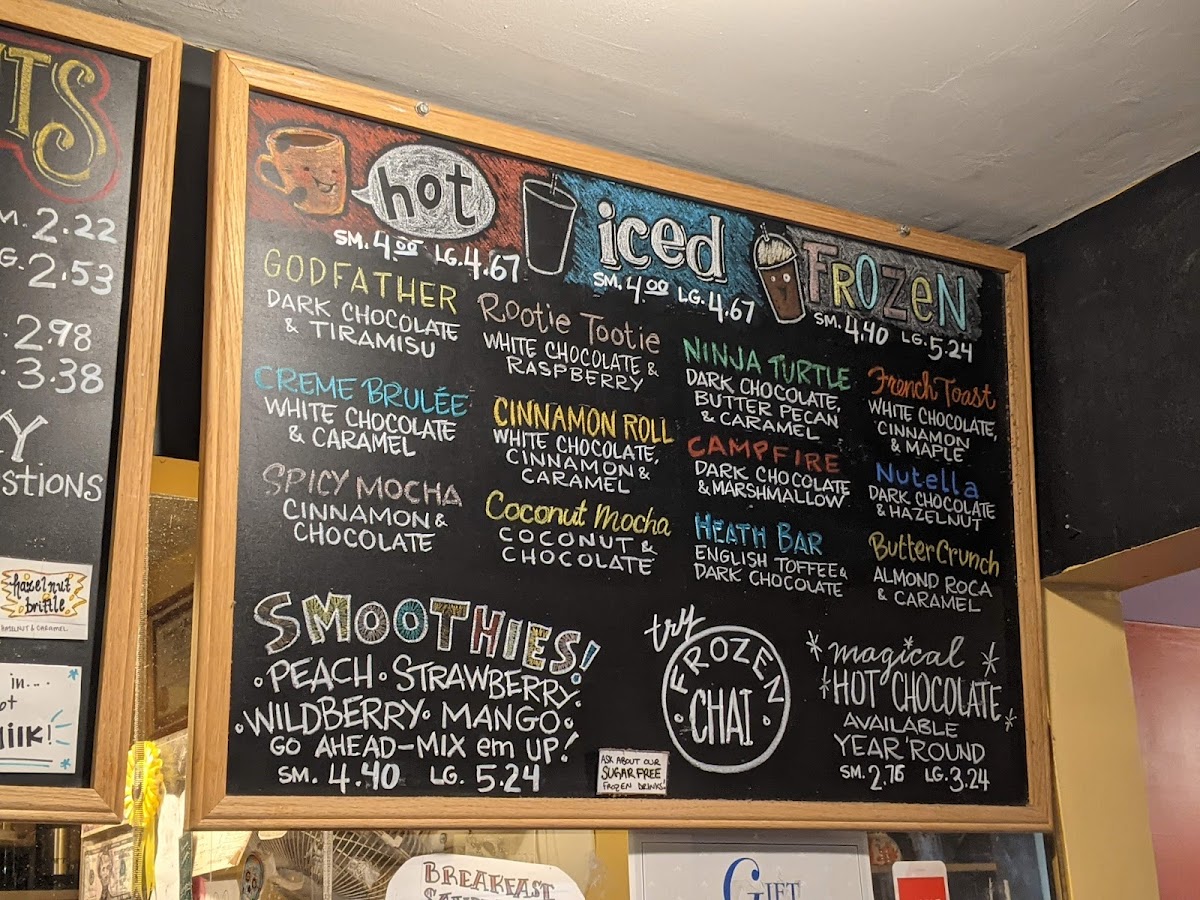 TS
M. 2.22
G. 2.53
2.98
3.38
Y
STIONS
hazelnut
brittle
HAZELNUT & CARAMEL
in...
ot
milk!
hot
SM. 4.00 LG. 4.67
iced
SM. 4.00 LG. 4.67
FROZEN
SM. 4.40 LG. 5.24
GODFATHER
DARK CHOCOLATE
& TIRAMISU
CREME BRULÉE
WHITE CHOCOLATE
& CARAMEL
SPICY MOCHA
CINNAMON &
CHOCOLATE
Rootie Tootie
WHITE CHOCOLATE &
RASPBERRY
CINNAMON ROLL
WHITE CHOCOLATE,
CINNAMON &
CARAMEL
Coconut Mocha
COCONUT &
CHOCOLATE
NINJA TURTLE
DARK CHOCOLATE,
BUTTER PECAN
& CARAMEL
CAMPFIRE
DARK CHOCOLATE
& MARSHMALLOW
HEATH BAR
ENGLISH TOFFEE &
DARK CHOCOLATE
French Toast
WHITE CHOCOLATE,
CINNAMON
& MAPLE
Nutella
DARK CHOCOLATE
& HAZELNUT
ButterCrunch
ALMOND ROCA
& CARAMEL
SMOOTHIES!
• PEACH • STRAWBERRY •
• WILDBERRY • MANGO •
GO AHEAD - MIX em UP!
SM. 4.40 LG. 5.24
try
FROZEN
• CHAI •
ASK ABOUT OUR
SUGAR FREE
FROZEN DRINKS!
magical
HOT CHOCOLATE
AVAILABLE
YEAR 'ROUND
SM. 2.76 LG. 3.24
BREAKFAST
GIFT